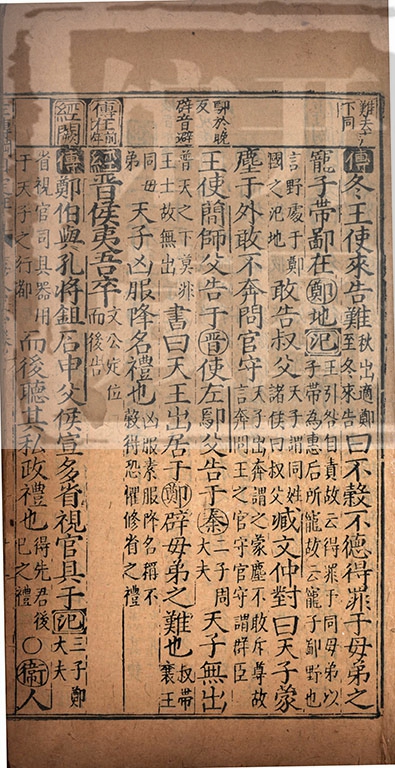 難去
下同
傳冬王使來告難秋出適鄭至冬來告曰不榖不德得罪于母弟之
寵子帶鄙在鄭地氾王引咎自責故云得罪于同母弟以子帶為惠后所寵故云寵子鄙野也
言野處于鄭國之氾地敢告叔父天子謂同姓諸侯曰叔父臧文仲對曰天子蒙
塵于外敢不奔問官守天子出奔謂之蒙塵不敢斥尊故言奔問王之官守官守謂群臣
鄢於晚反
王使簡師父告于晉使左鄢父告于秦二子周大夫天子無出
辟音避
普天之下莫非王土故無出書曰天王出居于鄭辟母弟之難也叔帶襄王
同母弟天子凶服降名禮也凶服素服降名稱不榖得恐懼修省之禮
傳在前年
經晉侯夷吾卒文公定位而後告
經闕
傳鄭伯與孔將鉏石甲父侯宣多省視官具于氾三子鄭大夫
省視官司具器用于天子之行鄙而後聽其私政禮也得先君後己之禮○衛人